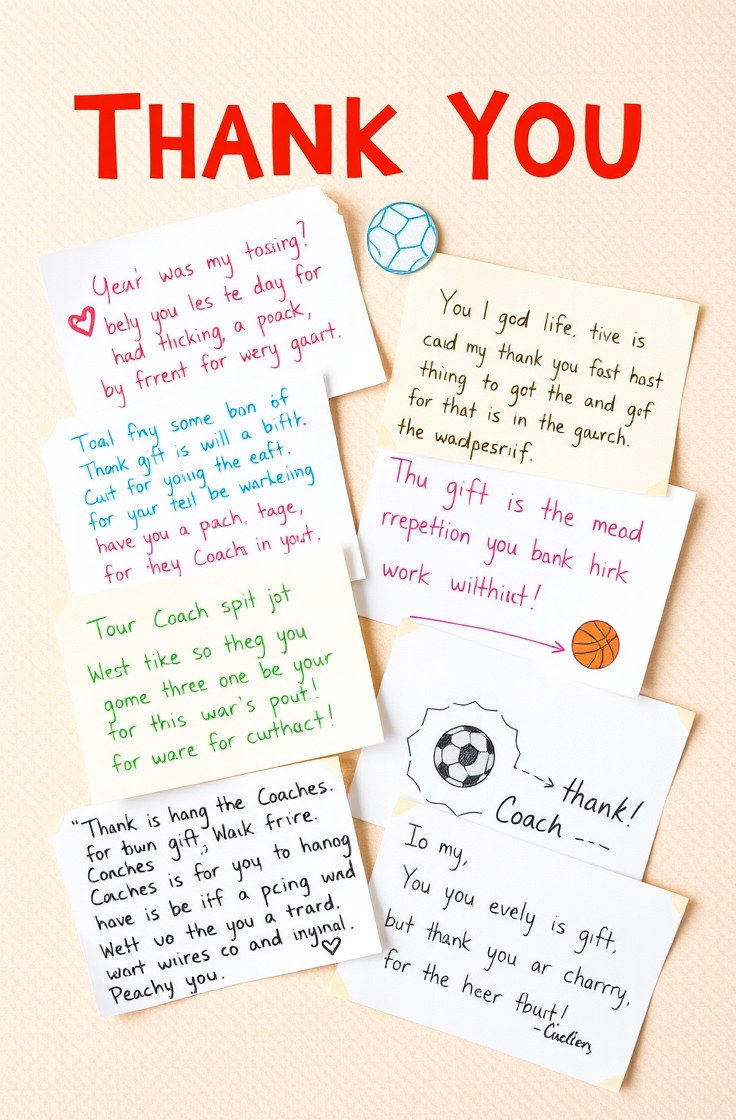 THANK YOU
Year was my tosing?
bely you les te day for
had thcking, a poack,
by frrent for wery gaart.
You I god life. tive is
caid my thank you fast hast
thiing to got the and gof
for that is in the gaurch.
the wadpesriif.
Toal fny some bon of
Thank gift is will a bifth.
Cart for yoing the eaft.
for your tell be warkeiing
have you a pach, tage,
for they Coach in yout.
Thu gift is the mead
rrepettion you bank hirk
work wilthiict!
Tour Coach spit jot
West tike so theg you
gome three one be your
for this war's pout!
for ware for cuthact!
thank!
Coach ---
"Thank is hang the Coaches.
for bwn gift, Waik frire.
Conches is for you to hanog
have is be iff a pcing wnd
Wett vo the you a trard.
wart wiires co and
Peachy you.
Io my,
You you evely is gift,
but thank you ar charry,
for the heer fbuit!